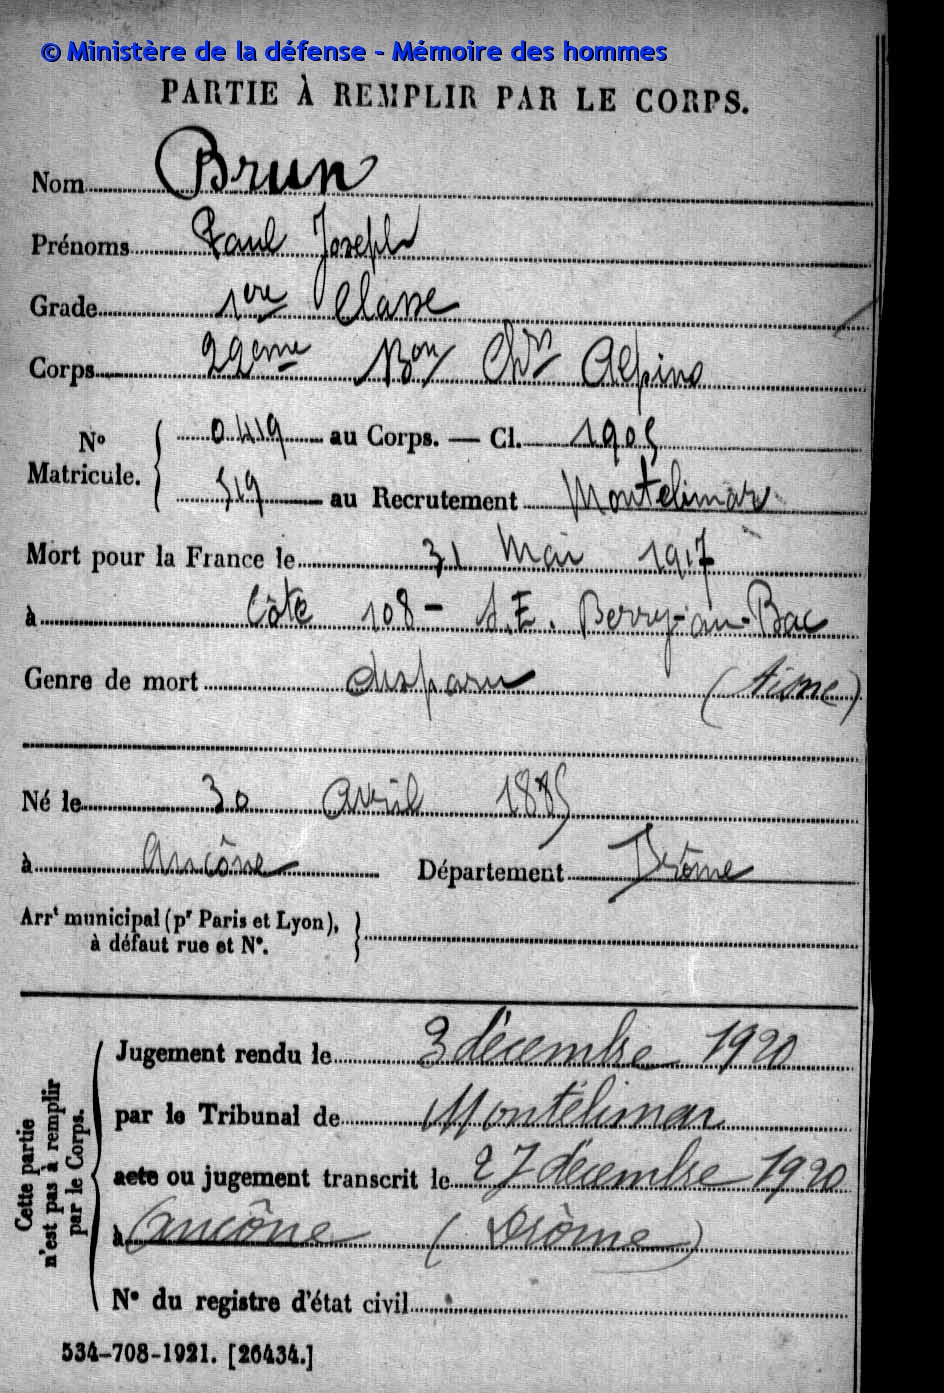 © Ministère de la défense - Mémoire des hommes
PARTIE À REMPLIR PAR LE CORPS.
Nom Brun
Prénoms Paul Joseph
Grade 1ère Classe
Corps 22ème Bon Chrs Alpins
No Matricule. { 0419 au Corps. — Cl. 1905
519 au Recrutement Montélimar
Mort pour la France le 31 Mai 1917
à Côte 108 - S.E. Berry-au-Bac
Genre de mort disparu (Aisne)
Né le 30 avril 1885
à Ancône Département Drôme
Arrt municipal (pr Paris et Lyon), à défaut rue et No. }
Cette partie n'est pas à remplir par le Corps.
Jugement rendu le 3 décembre 1920
par le Tribunal de Montélimar
acte ou jugement transcrit le 27 décembre 1920
à Ancône (Drôme)
No du registre d'état civil
534-708-1921. [26434.]